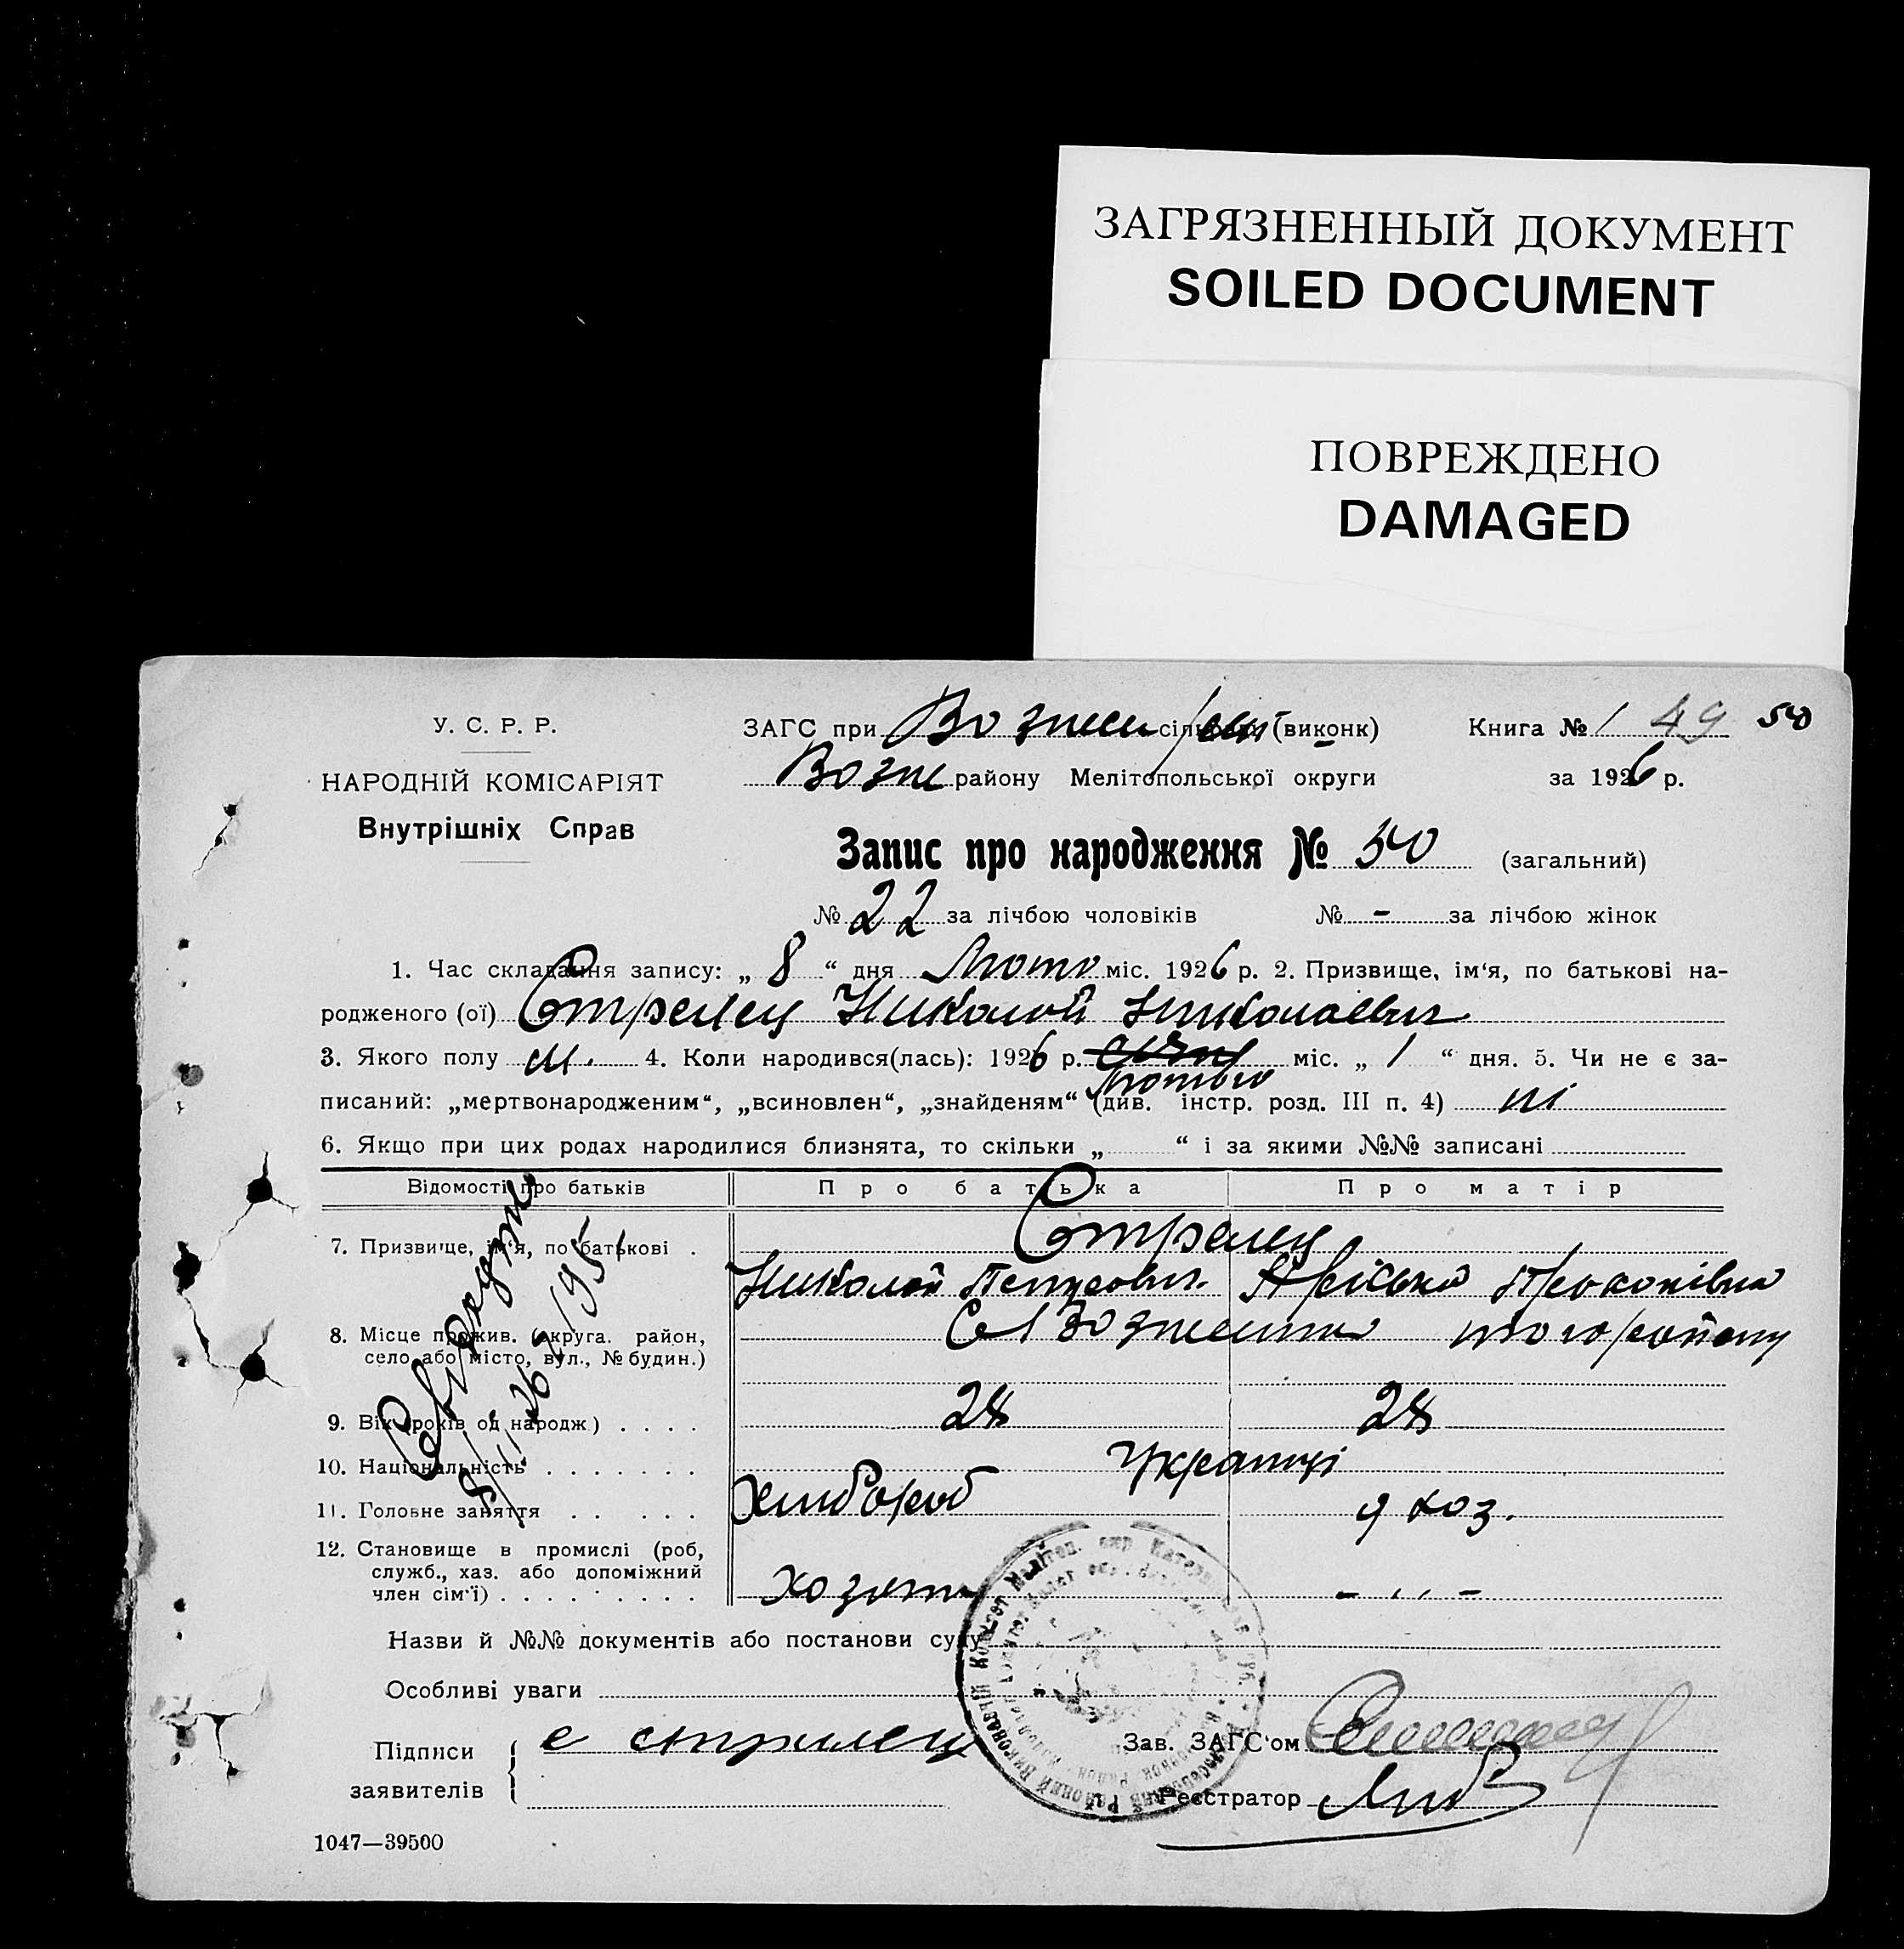 ЗАГРЯЗНЕННЫЙ ДОКУМЕНТ
SOILED DOCUMENT
ПОВРЕЖДЕНО
DAMAGED
У. С. Р. Р.
НАРОДНІЙ КОМІСАРІЯТ
Внутрішніх Справ
ЗАГС при (виконк) Книга № 1 49 50
Возне району Мелітопольської округи за 1926 р.
Запис про народження № 50 (загальний)
№ 22 за лічбою чоловіків № - за лічбою жінок
1. Час складання запису: „ 8 “ дня Лютого міс. 1926 р. 2. Призвище, ім'я, по батькові на-
родженого (ої) Стрелец Николай Николаевич
3. Якого полу м. 4. Коли народився(лась): 1926 р. січня міс. „ 1 “ дня. 5. Чи не є за-
Лютого
писаний: „мертвонародженим“, „всиновлен“, „знайденям“ (див. інстр. розд. III п. 4) ні
6. Якщо при цих родах народилися близнята, то скільки „ “ і за якими №№ записані
Відомості про батьків Про батька Про матір
7. Призвище, ім'я, по батькові . Стрелец
Николай Петрович Прокопівна
8. Місце прожив. (округа. район,
село або місто, вул., № будин.)
того району
9. Вік (років од народж) . . . . 28 28
10. Національність . . . . . . . Українці
11. Головне заняття . . . . . Хлибороб д хоз.
12. Становище в промислі (роб,
служб., хаз. або допоміжний
член сім'ї) . . . . . . . . хозяин - ,, -
Назви й №№ документів або постанови суду
Особливі уваги
Підписи
заявителів
Зав. ЗАГС'ом
Реєстратор
1047—39500